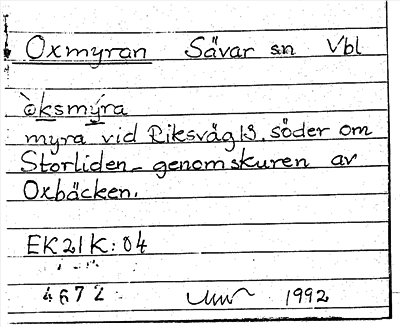 Oxmyran Sävar sn Vbl
òksmýra
myra vid Riksväg 13. söder om
Storliden - genomskuren av
Oxbäcken.
EK 21K: 04
4672 1992